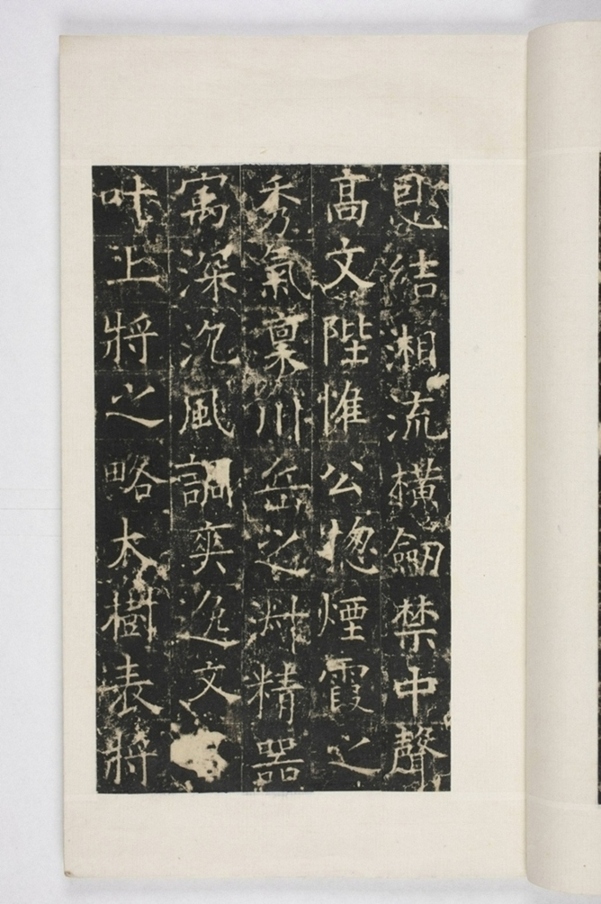 恩結湘流橫劒禁中聲
高文陛惟公揔煙霞之
秀氣稟川岳之精器
寓深沉風調爽逸文
叶上將之略大樹表將